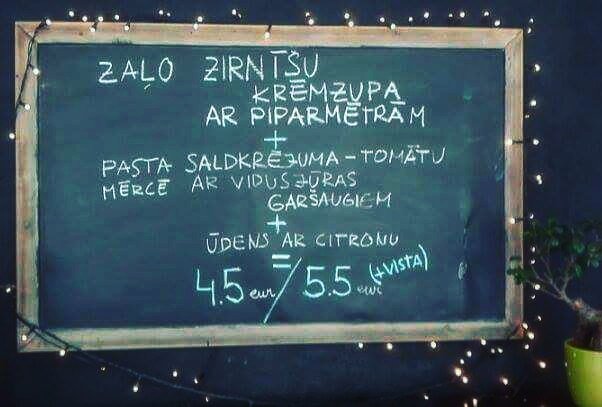 ZAĻO ZIRNĪŠU
KRĒMZUPA
AR PIPARMĒTRĀM
+
PASTA SALDKRĒJUMA - TOMĀTU
MĒRCĒ AR VIDUSJŪRAS
GARŠAUGIEM
+
ŪDENS AR CITRONU
=
4.5 eur / 5.5 eur (+VISTA)